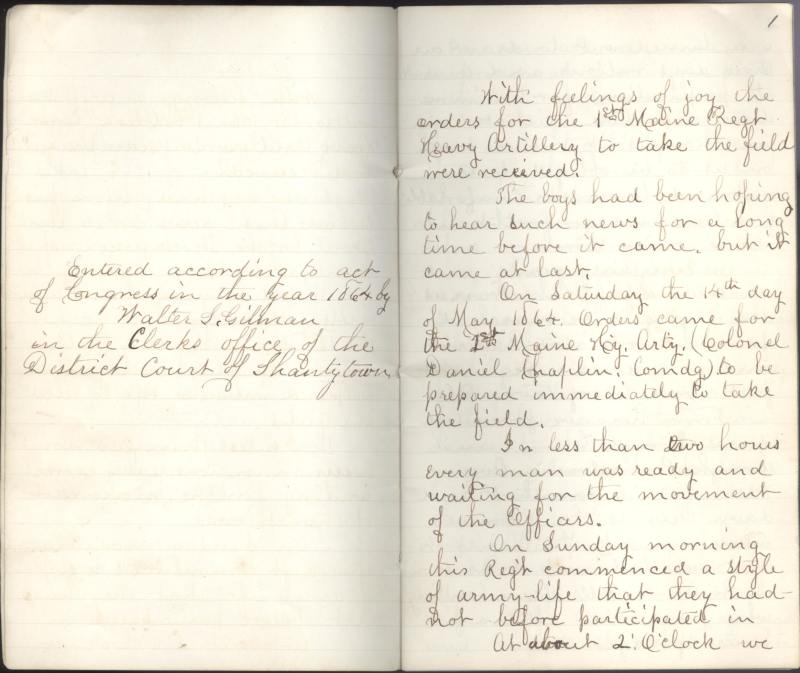 Entered according to act
of Congress in the year 1864 by
Walter S. Gilman
in the Clerks office of the
District Court of Shantytown
1
With feelings of joy the
orders for the 1st Maine Regt
Heavy Artillery to take the field
were received.
The boys had been hoping
to hear such news for a long
time before it came. but it
came at last.
On Saturday the 14th day
of May 1864. Orders came for
the 1st Maine Hy. Arty. (Colonel
Daniel Chaplin. Comdg) to be
prepared immediately to take
the field.
In less than two hours
every man was ready and
waiting for the movement
of the Officars.
On Sunday morning
this Regt commenced a style
of army-life that they had-
not before participated in
At about 2. O'clock we